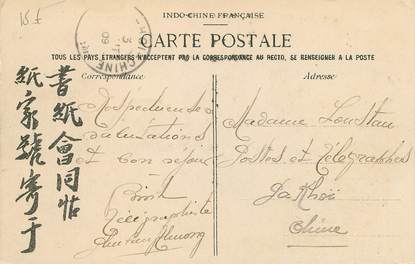 INDO-CHINE FRANÇAISE
CARTE POSTALE
TOUS LES PAYS ETRANGERS N'ACCEPTENT PAS LA CORRESPONDANCE AU RECTO, SE RENSEIGNER A LA POSTE
Correspondance
Respectueuses
salutations
et bon séjour
Télégraphiste
書紙會同帖
紙家號寄于
Adresse
Madame Loustau
Postes et Télégraphes
Pakhoï
Chine